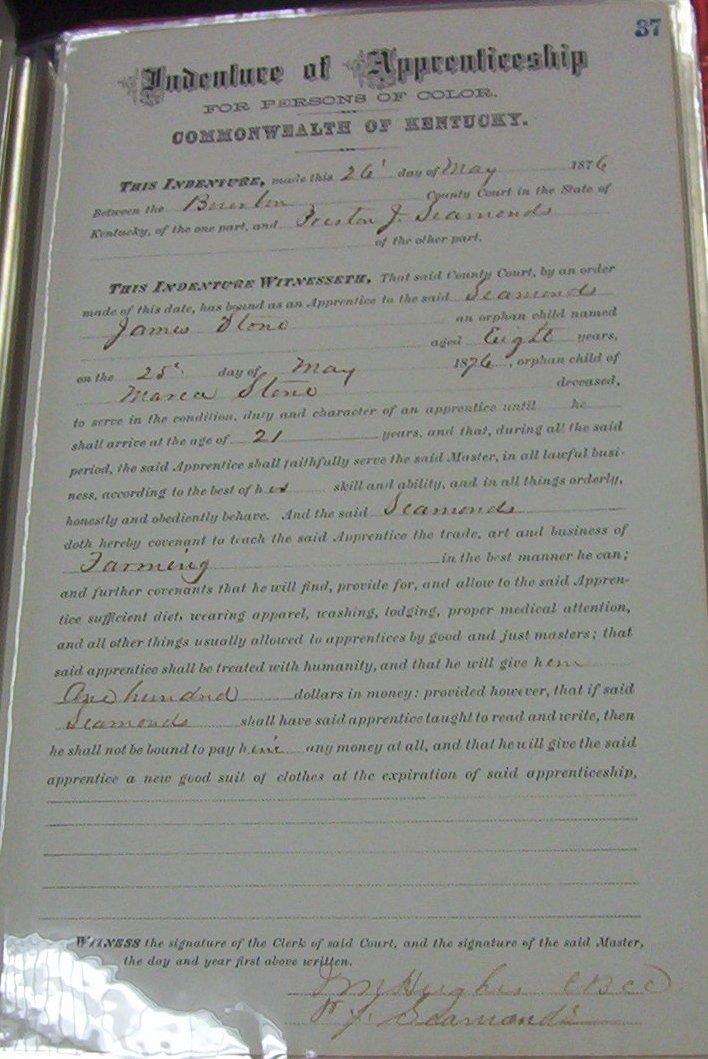 37
Indenture of Apprenticeship
FOR PERSONS OF COLOR.
COMMONWEALTH OF KENTUCKY.
THIS INDENTURE, made this 26' day of May 1876
Between the Bourbon County Court in the State of
Kentucky, of the one part, and J. Seamonds
of the other part.
THIS INDENTURE WITNESSETH, That said County Court, by an order
made of this date, has bound as an Apprentice to the said Seamonds
James Stone an orphan child named
aged Eight years,
on the 25' day of May 1876, orphan child of
Maria Stone deceased,
to serve in the condition, duty and character of an apprentice until he
shall arrive at the age of 21 years, and that, during all the said
period, the said Apprentice shall faithfully serve the said Master, in all lawful busi-
ness, according to the best of his skill and ability, and in all things orderly,
honestly and obediently behave. And the said Seamonds
doth hereby covenant to teach the said Apprentice the trade, art and business of
Farming in the best manner he can;
and further covenants that he will find, provide for, and allow to the said Appren-
tice sufficient diet, wearing apparel, washing, lodging, proper medical attention,
and all other things usually allowed to apprentices by good and just masters; that
said apprentice shall be treated with humanity, and that he will give him
One hundred dollars in money: provided however, that if said
Seamonds shall have said apprentice taught to read and write, then
he shall not be bound to pay him any money at all, and that he will give the said
apprentice a new good suit of clothes at the expiration of said apprenticeship,
WITNESS the signature of the Clerk of said Court, and the signature of the said Master,
the day and year first above written.
Hughes
J. Seamonds